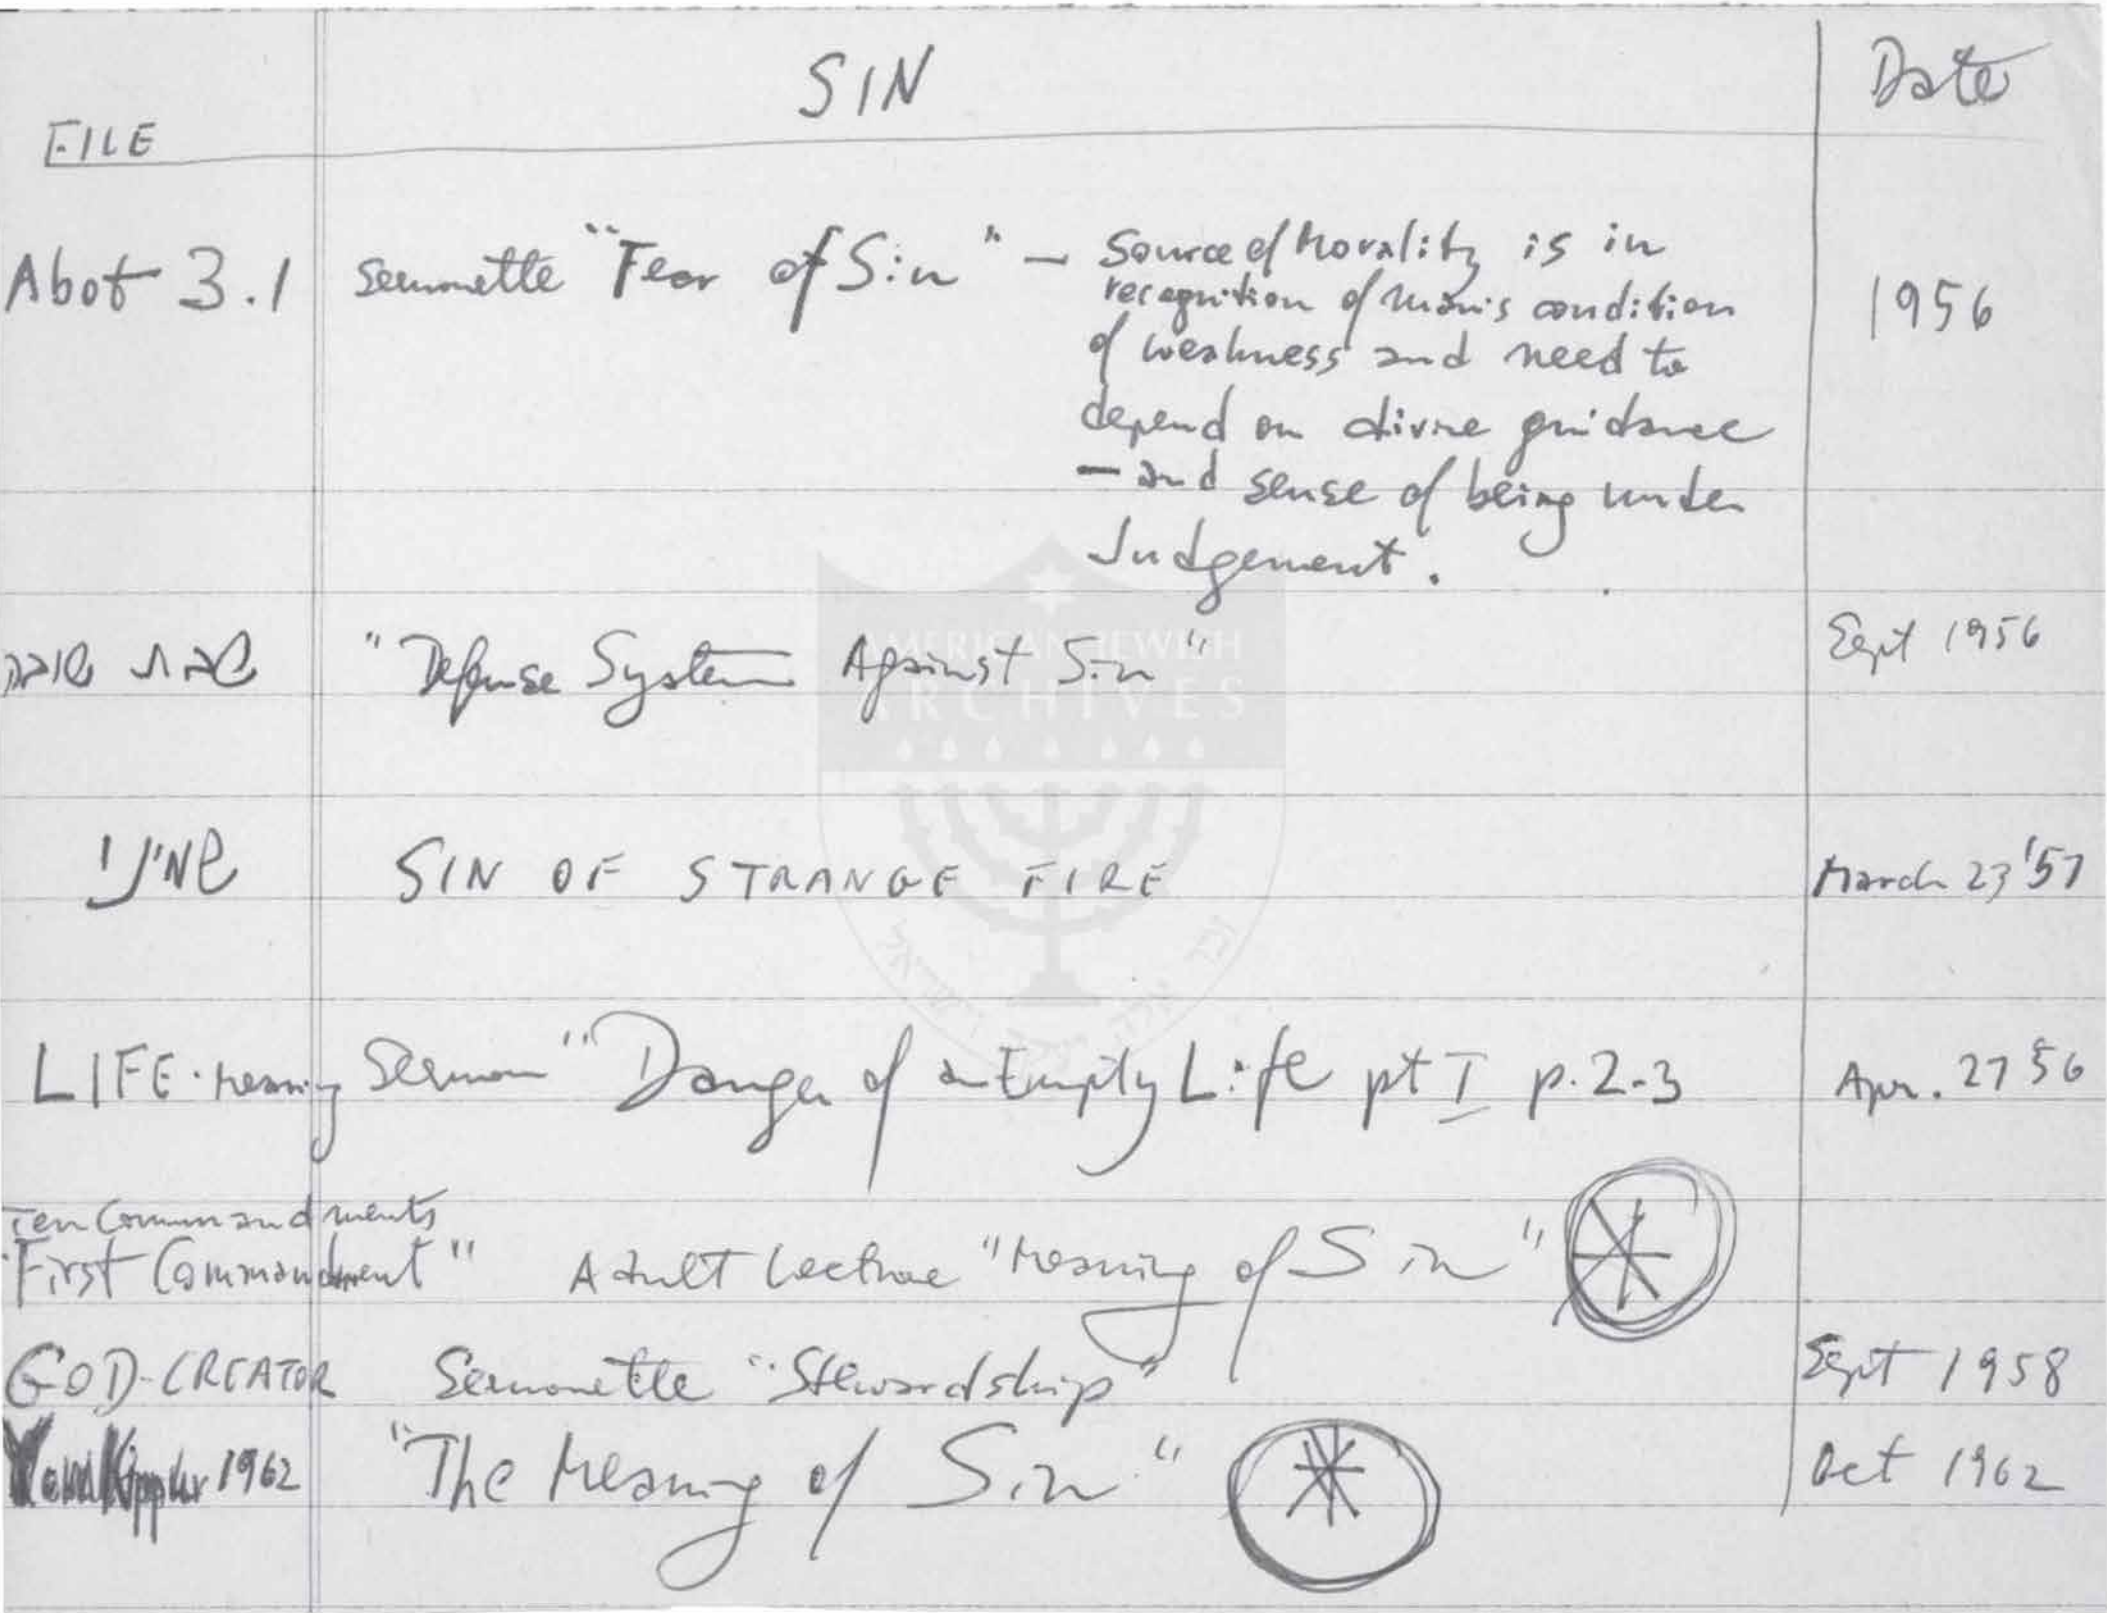 SIN
Date
FILE
Abot 3.1 Sermonette "Fear of Sin" — Source of Morality is in
recognition of man's condition
of weakness and need to
depend on divine guidance
— and sense of being under
Judgement.
1956
שבת שובה "Defense System Against Sin" Sept 1956
שמיני SIN OF STRANGE FIRE March 23 '57
LIFE-Meaning Sermon "Danger of an Empty Life pt I p. 2-3 Apr. 27 56
Ten Commandments
"First Commandment" Adult Lecture "Meaning of Sin"
GOD-CREATOR Sermonette "Stewardship" Sept 1958
Yom Kippur 1962 "The Meaning of Sin" Oct 1962
AMERICAN JEWISH
ARCHIVES